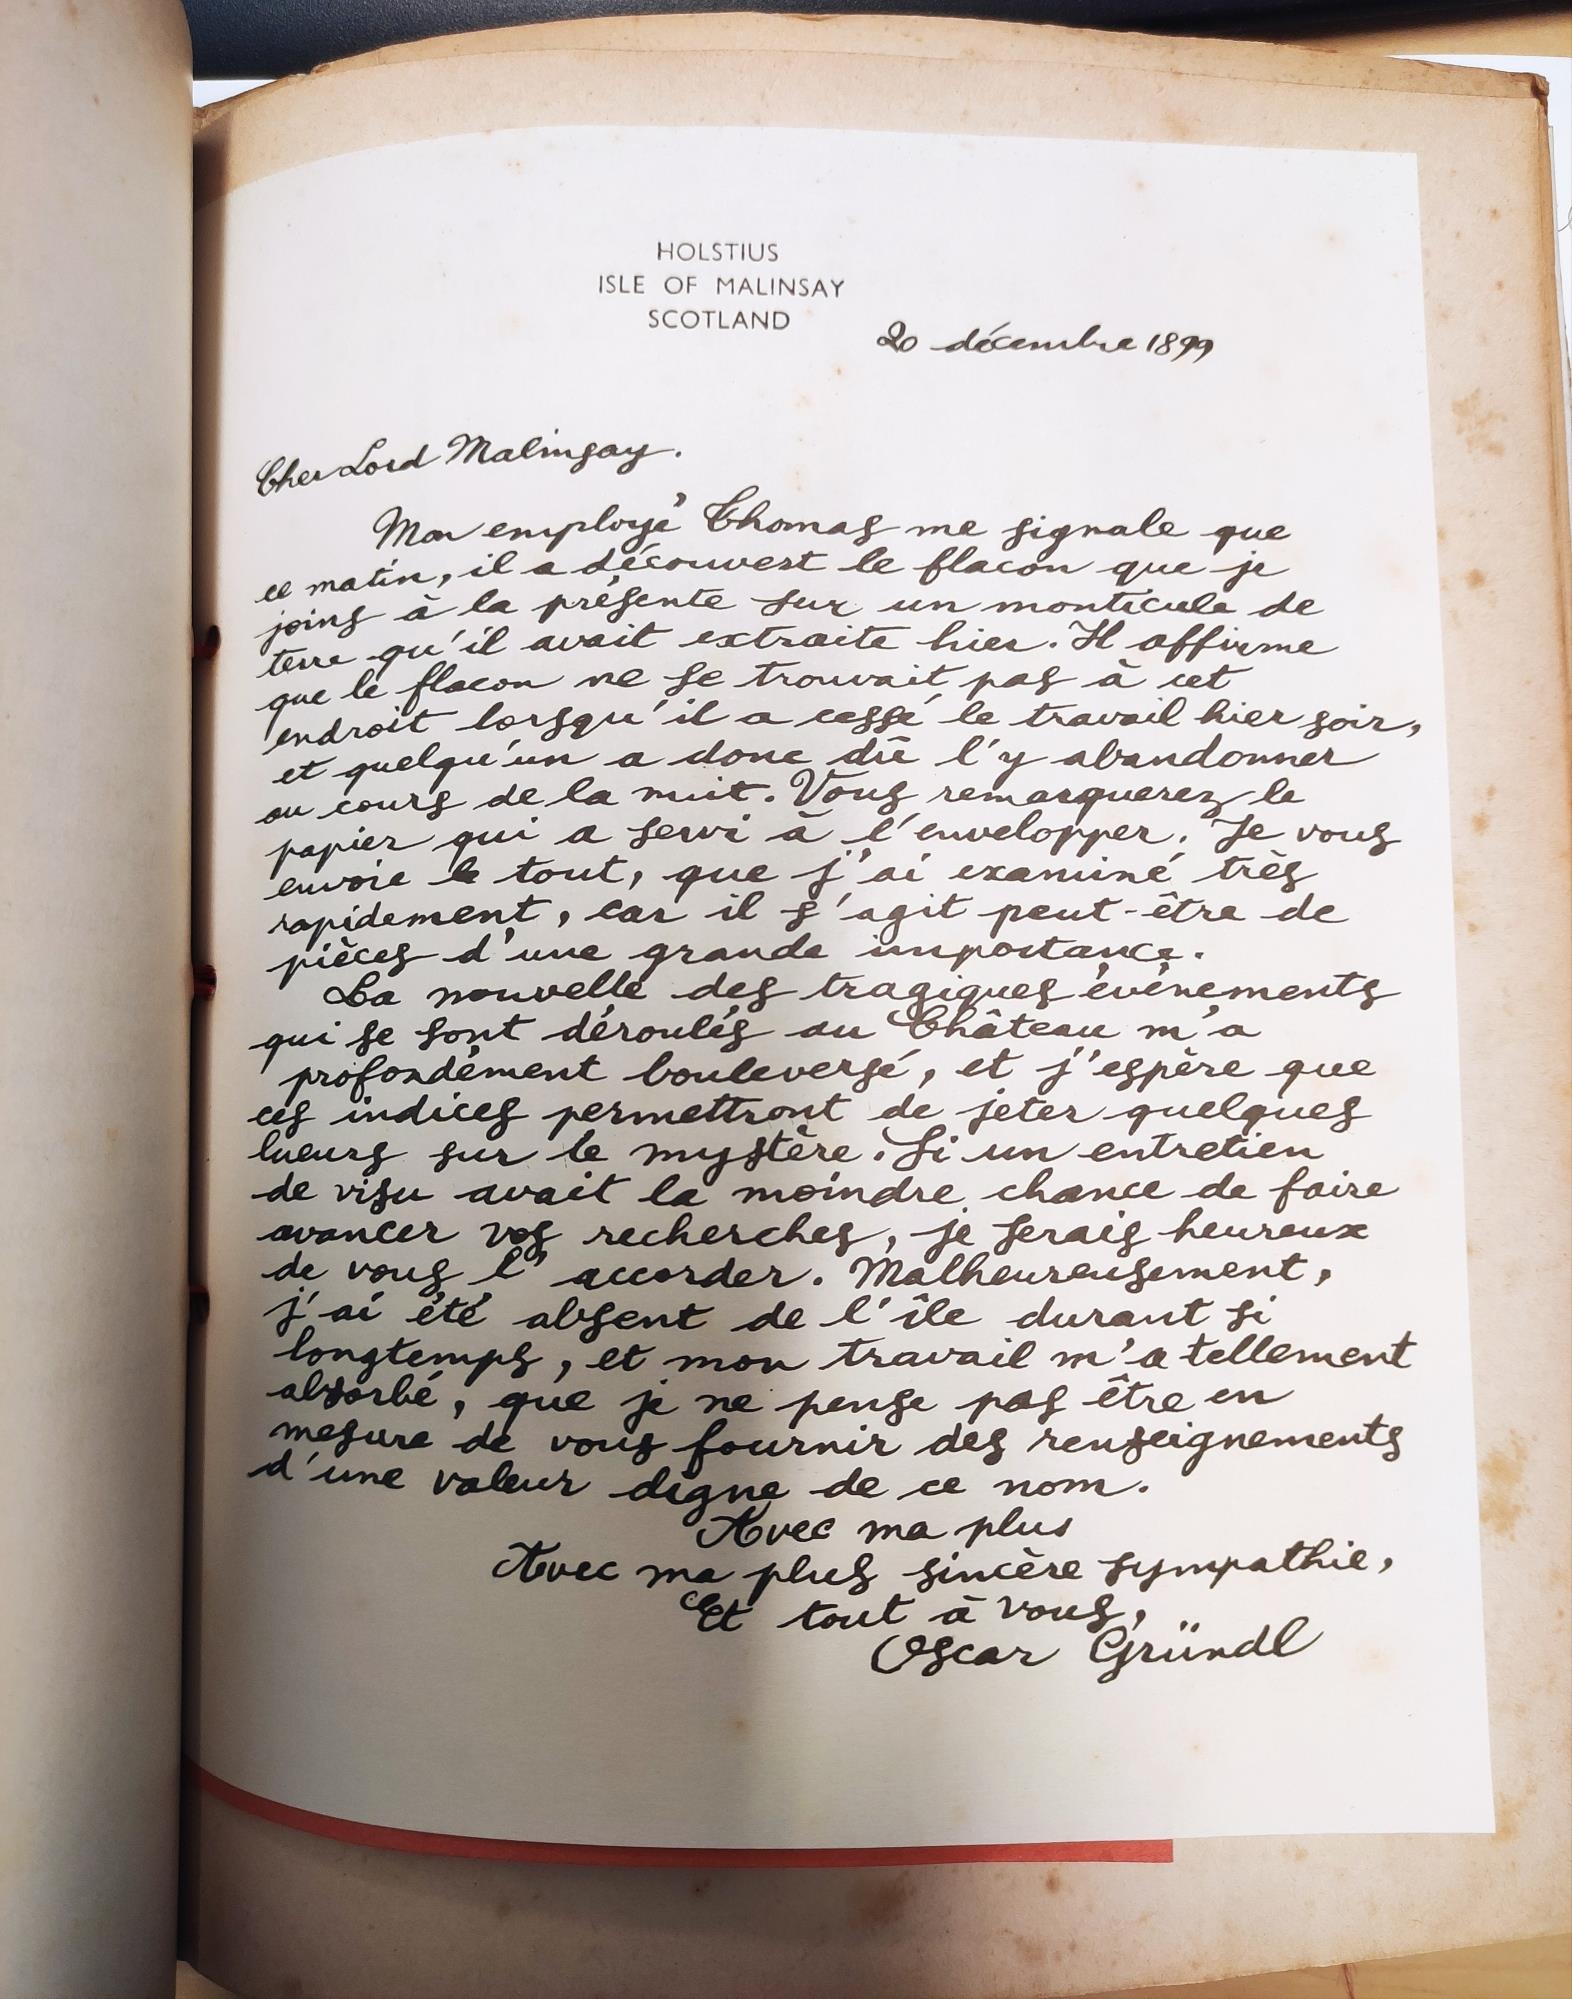 HOLSTIUS
ISLE OF MALINSAY
SCOTLAND
20 décembre 1899
Cher Lord Malinsay.
Mon employé Thomas me signale que
ce matin, il a découvert le flacon que je
joins à la présente sur un monticule de
terre qu'il avait extraite hier. Il affirme
que le flacon ne se trouvait pas à cet
endroit lorsqu'il a cessé le travail hier soir,
et quelqu'un a donc dû l'y abandonner
au cours de la nuit. Vous remarquerez le
papier qui a servi à l'envelopper. Je vous
envoie le tout, que j'ai examiné très
rapidement, car il s'agit peut-être de
pièces d'une grande importance.
La nouvelle des tragiques événements
qui se sont déroulés au Château m'a
profondément bouleversé, et j'espère que
ces indices permettront de jeter quelques
lueurs sur le mystère. Si un entretien
de visu avait la moindre chance de faire
avancer vos recherches, je serais heureux
de vous l'accorder. Malheureusement,
j'ai été absent de l'île durant si
longtemps, et mon travail m'a tellement
absorbé, que je ne pense pas être en
mesure de vous fournir des renseignements
d'une valeur digne de ce nom.
Avec ma plus
Avec ma plus sincère sympathie,
Et tout à vous,
Oscar Gründl